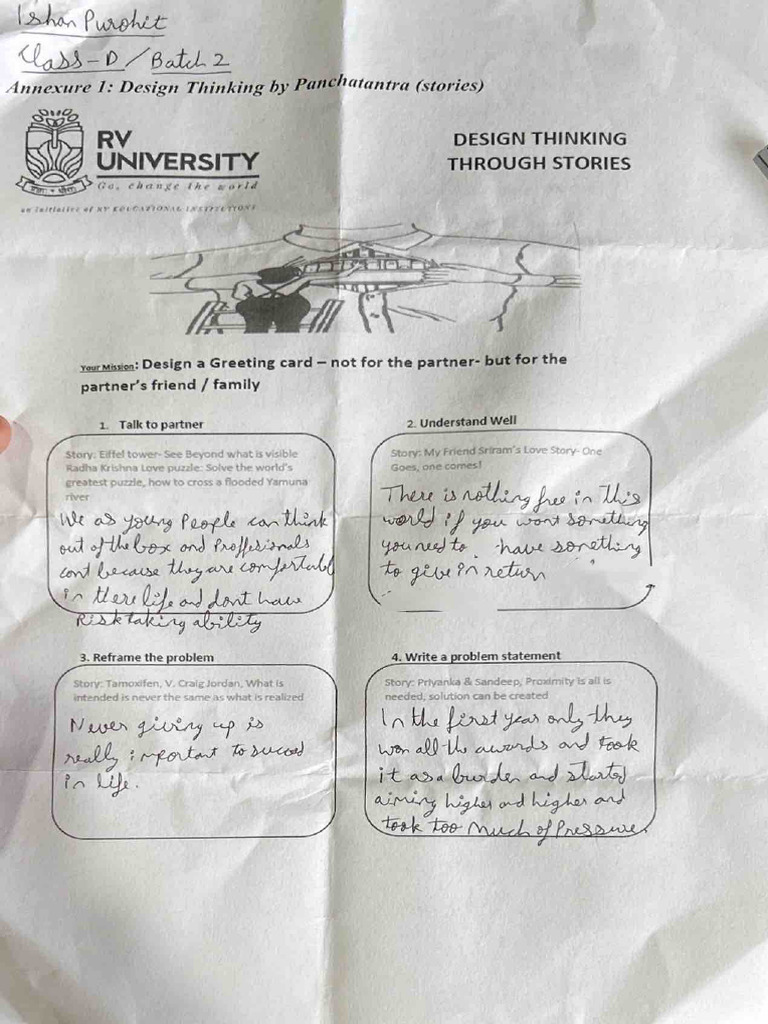 Ishan Purohit
Class-D / Batch 2
Annexure 1: Design Thinking by Panchatantra (stories)
RV
UNIVERSITY
Go, change the world
an initiative of RV EDUCATIONAL INSTITUTIONS
DESIGN THINKING
THROUGH STORIES
Your Mission: Design a Greeting card – not for the partner- but for the
partner's friend / family
1. Talk to partner
Story: Eiffel tower- See Beyond what is visible
Radha Krishna Love puzzle: Solve the world's
greatest puzzle, how to cross a flooded Yamuna
river
We as young People can think
out of the box and Proffesionals
cant because they are comfortable
in there life and dont have
Risk taking ability
2. Understand Well
Story: My Friend Sriram's Love Story- One
Goes, one comes!
There is nothing free in this
world if you want something
you need to have something
to give in return
3. Reframe the problem
Story: Tamoxifen, V. Craig Jordan, What is
intended is never the same as what is realized
Never giving up is
really important to succeed
in life.
4. Write a problem statement
Story: Priyanka & Sandeep, Proximity is all is
needed, solution can be created
In the first year only they
won all the awards and took
it as a burden and started
aiming higher and higher and
took too much of Pressure.